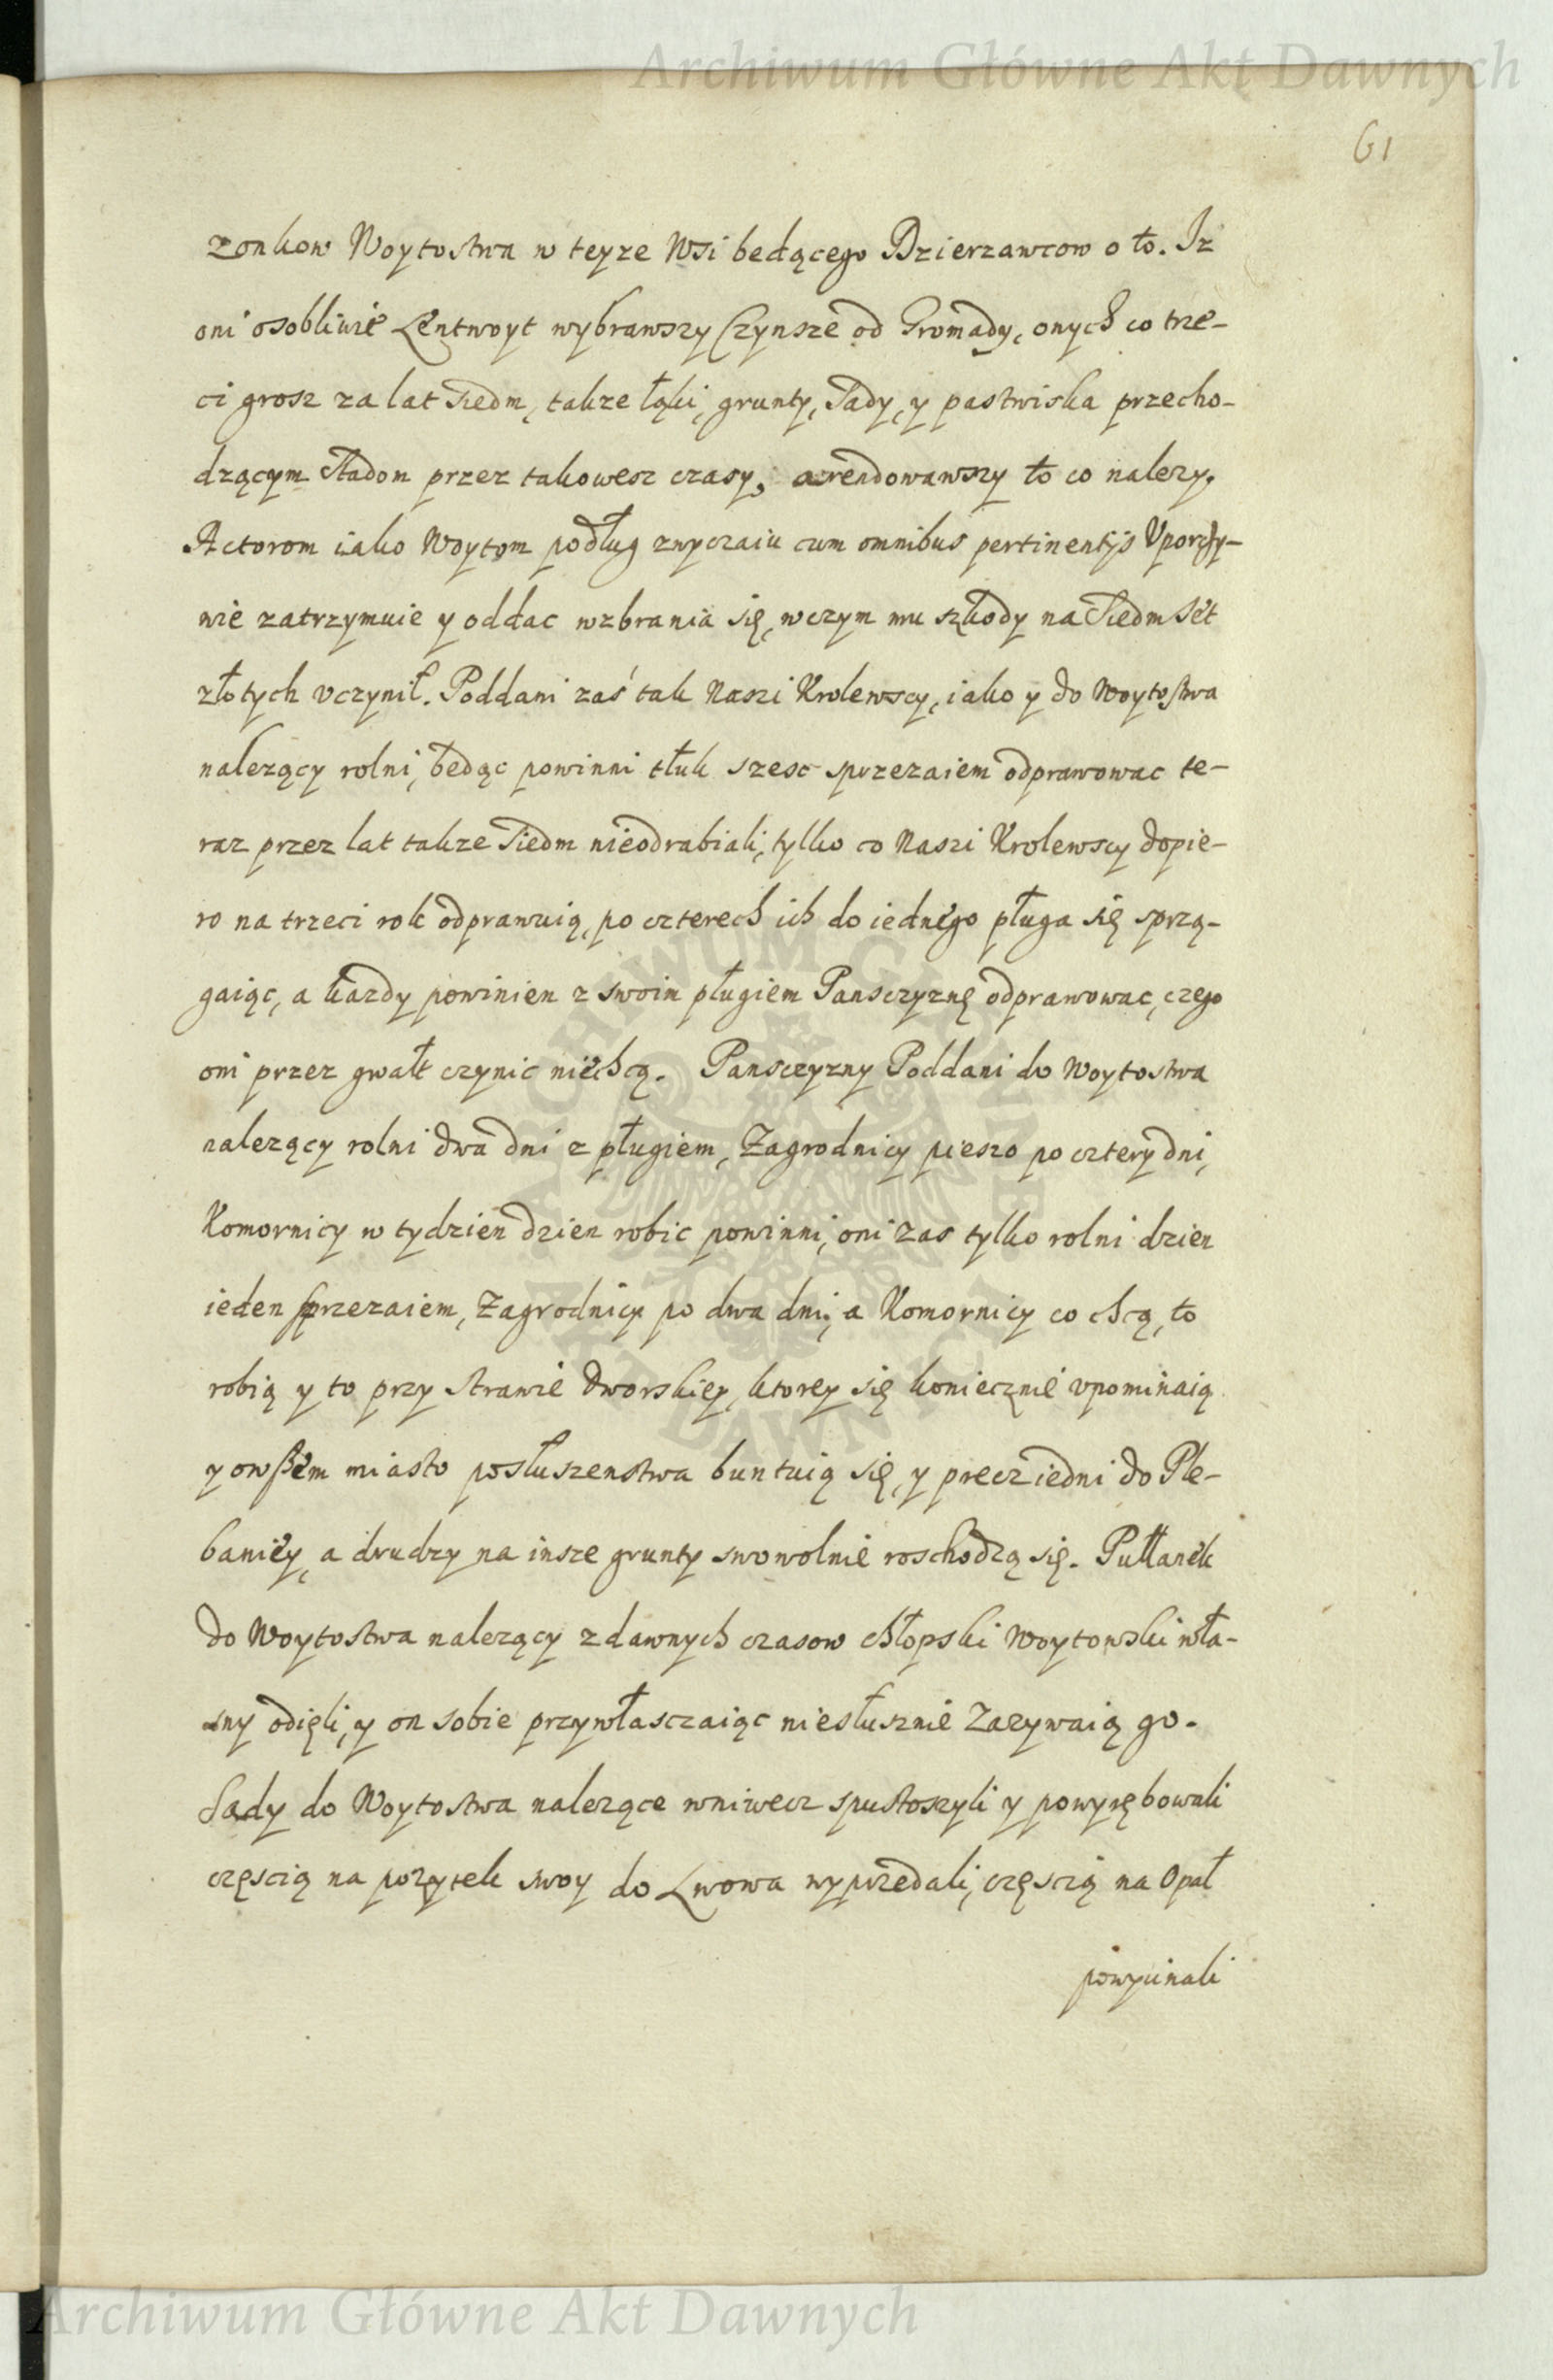 Archiwum Główne Akt Dawnych
61
zonkow Woytostwa w teyze Wsi bedącego Dzierzawcow o to. Iz
oni osobliwie Lentwoyt wybrawszy Czynsze od Gromady, onych co trze-
ci grosz za lat siedm, takze łąki, grunty, sady, y pastwiska przecho-
dzącym stadom przez takowesz czasy, arendowawszy to co nalezy.
Actorom iako Woytom podług zwyczaiu cum omnibus pertinentijs Vporczy-
wie zatrzymuie y oddac wzbrania się, wczym mu szkody na siedm set
złotych vczynił. Poddani zaś tak Naszi Krolewscy, iako y do Woytostwa
nalezący rolni, bedąc powinni tłuk szesc sprzezaiem odprawowac te-
raz przez lat takze siedm nieodrabiali, tylko co Naszi Krolewscy dopie-
ro na trzeci rok odprawuią, po czterech ich do iednego pługa się sprzą-
gaiąc, a kazdy powinien z swoim pługiem Pansczyznę odprawowac, czego
oni przez gwałt czynic niechcą. Pansczyzny Poddani do Woytostwa
nalezący rolni dwa dni z pługiem, Zagrodnicy pieszo po cztery dni,
Komornicy w tydzien dzien robic powinni, oni zas tylko rolni dzien
ieden sprzezaiem, Zagrodnicy po dwa dni, a Komornicy co chcą, to
robią y to przy strawie dworskiey, ktorey się koniecznie vpominaią
y owszem miasto posłuszenstwa buntuią się, y precz iedni do Ple-
baniey, a drudzy na insze grunty swowolnie roschodzą się. Pułłanek
do Woytostwa nalezący z dawnych czasow chłopski Woytowski wła-
sny odięli, y on sobie przywłasczaiąc niesłusznie Zazywaią go.
Sady do Woytostwa nalezące wniwecz spustoszyli y powyrębowali
częscią na pozytek swoy do Lwowa wyprzedali, częscią na Opał
powycinali
Archiwum Główne Akt Dawnych